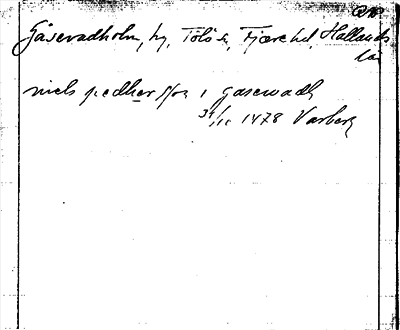 Gåsevadholm, hg, Tölö sn, Fjäre hd, Hallands
län
niels pedherssson i gasewadh
31/12 1478 Varberg